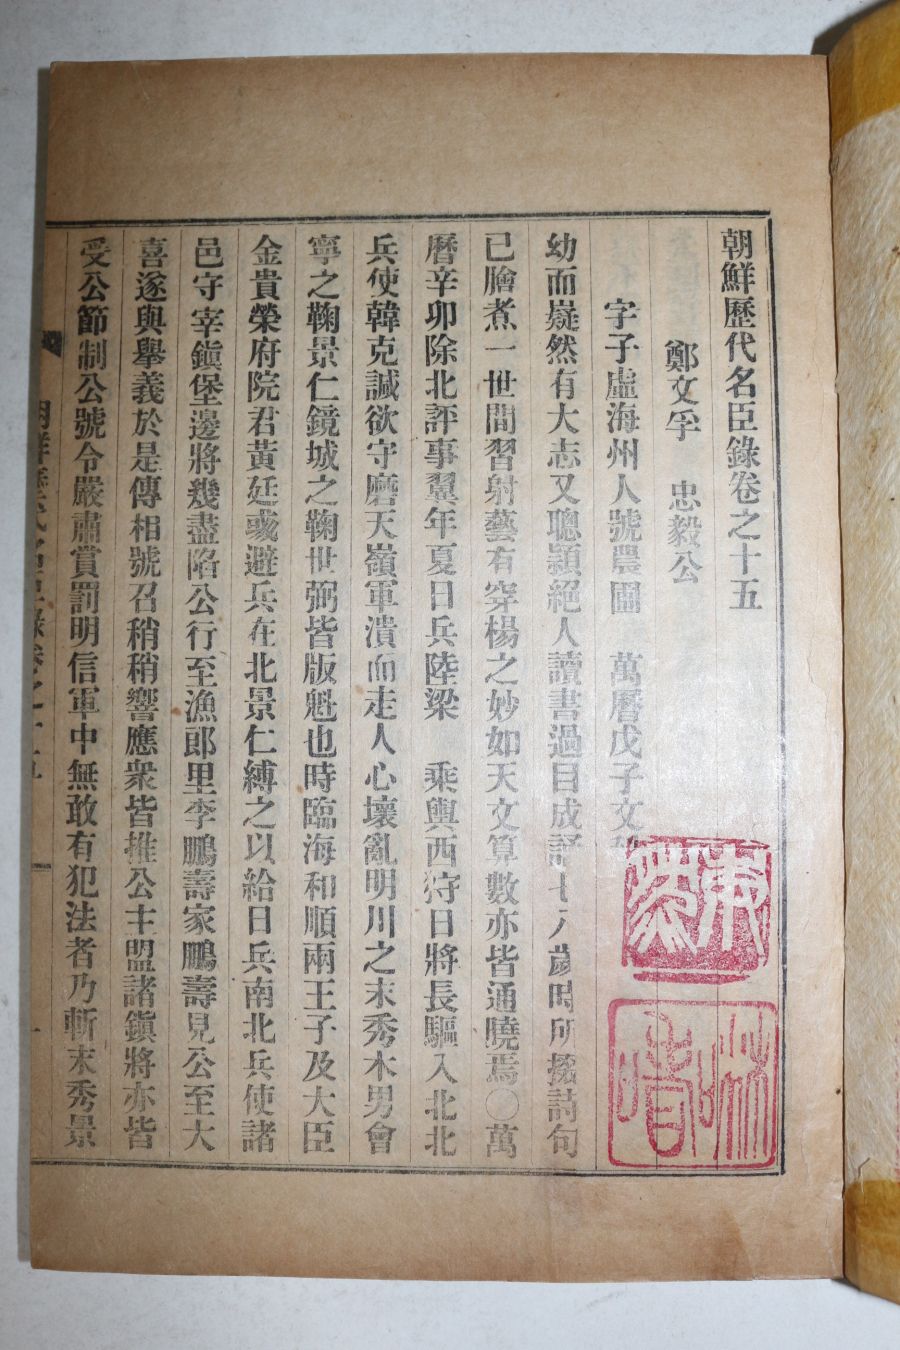 朝鮮歷代名臣錄卷之十五
鄭文孚 忠毅公
字子虛海州人號農圃 萬曆戊子文
幼而嶷然有大志又聰穎絕人讀書過目成誦七八歲時所掇詩句
已膾煮一世間習射藝有穿楊之妙如天文算數亦皆通曉焉〇萬
曆辛卯除北評事翼年夏日兵陸梁 乘輿西狩日將長驅入北北
兵使韓克諴欲守磨天嶺軍潰而走人心壞亂明川之末秀木男會
寧之鞠景仁鏡城之鞠世弼皆版魁也時臨海和順兩王子及大臣
金貴榮府院君黃廷彧避兵在北景仁縛之以給日兵南北兵使諸
邑守宰鎭堡邊將幾盡陷公行至漁郞里李鵬壽家鵬壽見公至大
喜遂與擧義於是傳相號召稍稍響應衆皆推公主盟諸鎭將亦皆
受公節制公號令嚴肅賞罰明信軍中無敢有犯法者乃斬末秀景